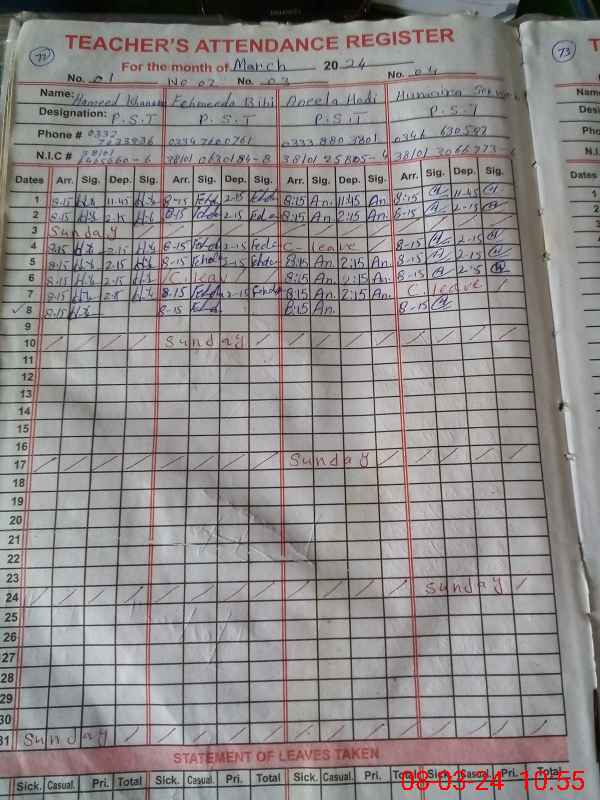 72
TEACHER'S ATTENDANCE REGISTER
73
For the month of March 2024
No. 01 No 02 No. 03 No. 04
Name: Hameed Khanam Fehmeeda Bibi Aneela Hadi Humaira
Designation: P.S.T P.S.T P.S.T P.S.T
Phone # 0332 0334 7600761 0333 880 3801 0346 630587
N.I.C # 38101 38101 0630184-8 38101 38101
Dates Arr. Sig. Dep. Sig. Arr. Sig. Dep. Sig. Arr. Sig. Dep. Sig. Arr. Sig. Dep. Sig.
1 8-15 11:45 8-15 2-15 8:15 An. 11:45 An. 8:15 11-45
2 8-15 2-15 8-15 2-15 8:15 An. 2:15 An. 8-15 2-15
3 Sunday
4 8-15 2-15 8-15 2-15 C-leave 8-15 2-15
5 8-15 2-15 8-15 2-15 8:15 An. 2:15 An. 8-15 2-15
6 8-15 2-15 C. leav 8:15 An. 2:15 An. 8-15 2-15
7 8-15 2-15 8-15 2-15 8:15 An. 2:15 An. C. leave
8 8-15 8-15 8:15 An. 8-15
9
10 Sunday
11
12
13
14
15
16
17 Sunday
18
19
20
21
22
23
24 Sunday
25
26
27
28
29
30
31 Sunday
STATEMENT OF LEAVES TAKEN
Sick. Casual. Pri. Total Sick. Casual. Pri. Total Sick. Casual. Pri. Total Sick. Casual. Pri. Total
08-03-24 10:55